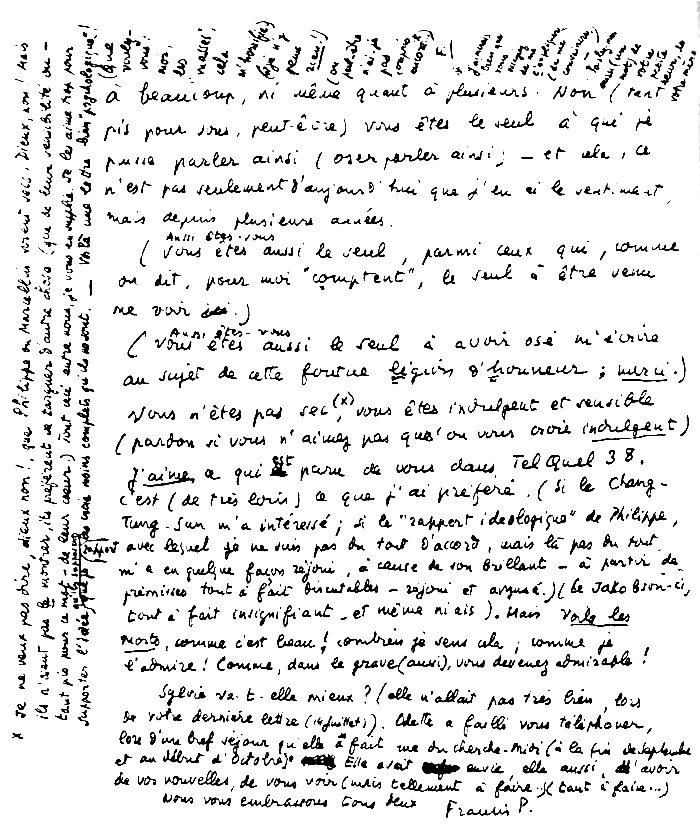 à beaucoup, ni même quant à plusieurs. Non (tant
pis pour vous, peut-être) vous êtes le seul à qui je
puisse parler ainsi (oser parler ainsi) – et cela, ce
n'est pas seulement d'aujourd'hui que j'en ai le sentiment,
mais depuis plusieurs années.
Aussi êtes-vous
(vous êtes aussi le seul, parmi ceux qui, comme
on dit, pour moi "comptent", le seul à être venu
me voir ici.)
Aussi êtes-vous
(vous êtes aussi le seul à avoir osé m'écrire
au sujet de cette foutue légion d'honneur ; merci.)
Vous n'êtes pas sec (x), vous êtes indulgent et sensible
(pardon si vous n'aimez pas qu'on vous croie indulgent)
J'aime ce qui est paru de vous dans Tel Quel 38.
c'est (de très loin) ce que j'ai préféré. (Si le Chang-
Tung-Sun m'a intéressé ; si le "rapport idéologique" de Philippe,
avec lequel je ne suis pas du tout d'accord, mais là pas du tout
m'a en quelque façon réjoui, à cause de son brillant – à partir de
prémisses tout à fait discutables – réjoui et amusé.) (le Jakobson-ci,
tout à fait insignifiant – et même niais). Mais Voile les
Morts, comme c'est beau ! combien je sens cela ; comme je
l'admire ! Comme, dans le grave (aussi), vous devenez admirable !
Sylvie va-t-elle mieux ? (elle n'allait pas très bien, lors
de votre dernière lettre (14 juillet)). Odette a failli vous téléphoner,
lors d'un bref séjour qu'elle a fait rue du Cherche-Midi (à la fin de septembre
et au début d'Octobre). Elle avait envie, elle aussi, d'avoir
de vos nouvelles, de vous voir (mais tellement à faire..) (tant à faire...)
Nous vous embrassons tous deux
Francis P.
x Je ne veux pas dire, dieux non !, que Philippe ou Marcellin soient secs. Dieux, non ! Mais
ils n'aiment pas le montrer, ils préfèrent se targuer d'autre chose (que de leur sensibilité ou –
tant pis pour ce mot – de leur cœur.) Tout ceci entre nous, je vous en supplie. Je les aime trop pour
supporter l'idée moins complets qu'ils ne sont. — Voilà une lettre bien "psychologique" !